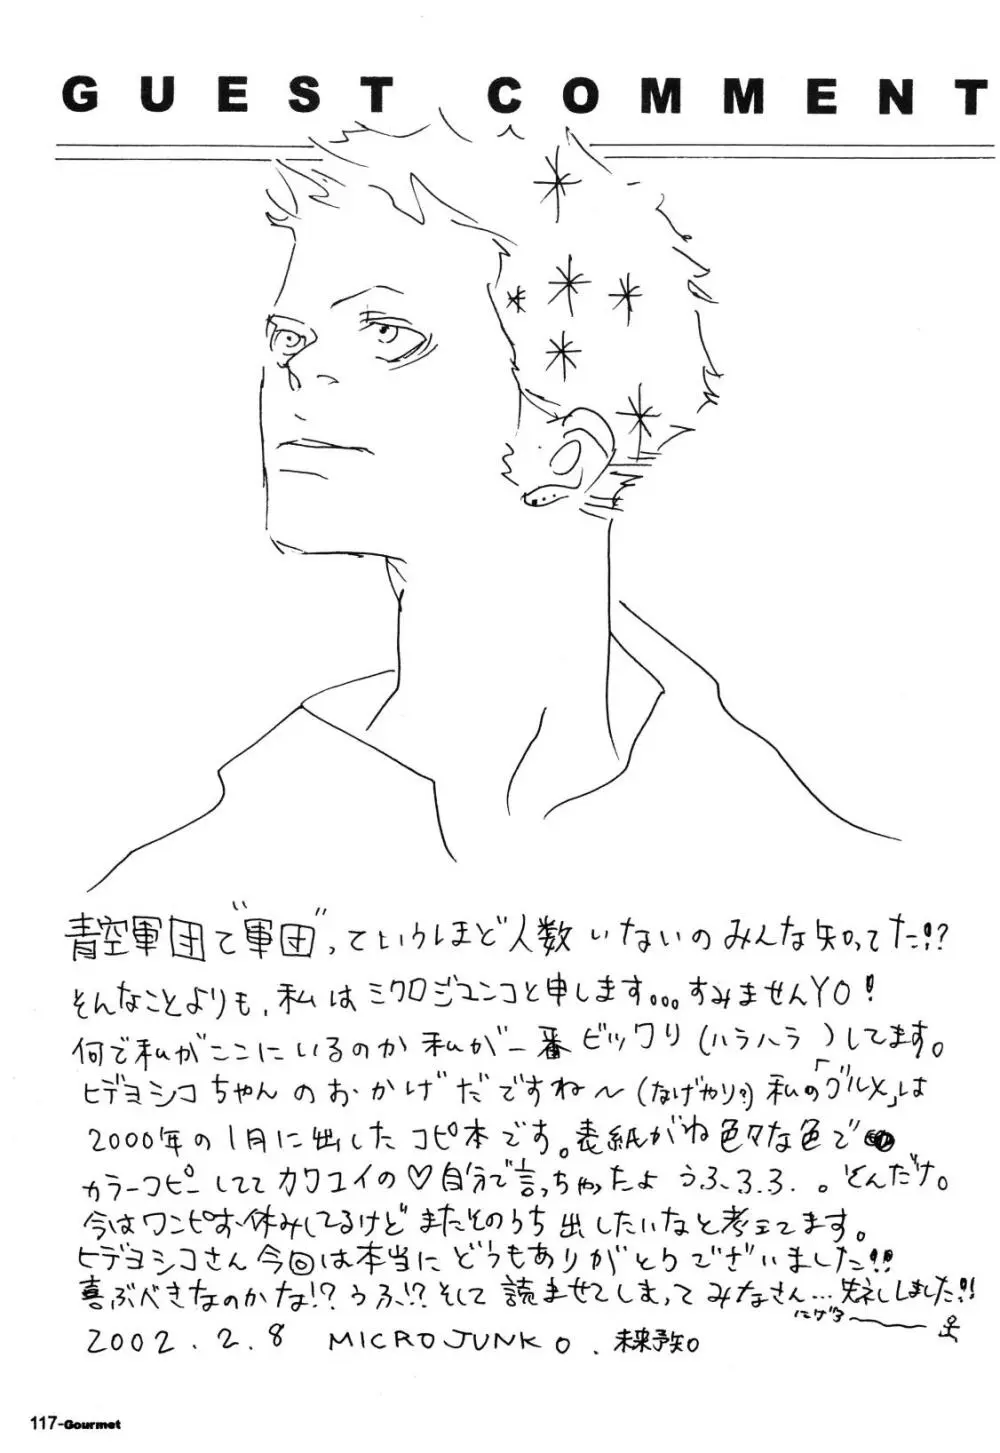 GUEST COMMENT
青空軍団で"軍団"っていうほど人数いないのみんな知ってた!?
そんなことよりも、私はミクロジュンコと申します。。。すみませんYO!
何で私がここにいるのか私が一番ビックリ(ハラハラ)してます。
ヒデヨシコちゃんのおかげだですね〜(なげやり?)私の「グルメ」は
2000年の1月に出したコピ本です。表紙がね色々な色で
カラーコピーしててカワユイの♡自分で言っちゃったようふふふ。どんだけ。
今はワンピお休みしてるけどまたそのうち出したいなと考えてます。
ヒデヨシコさん今回は本当にどうもありがとうございました!!
喜ぶべきなのかな!?うふ!?そして読ませてしまってみなさん...失礼しました!!
にげる
2002.2.8 MICROJUNKO.
117-Gourmet